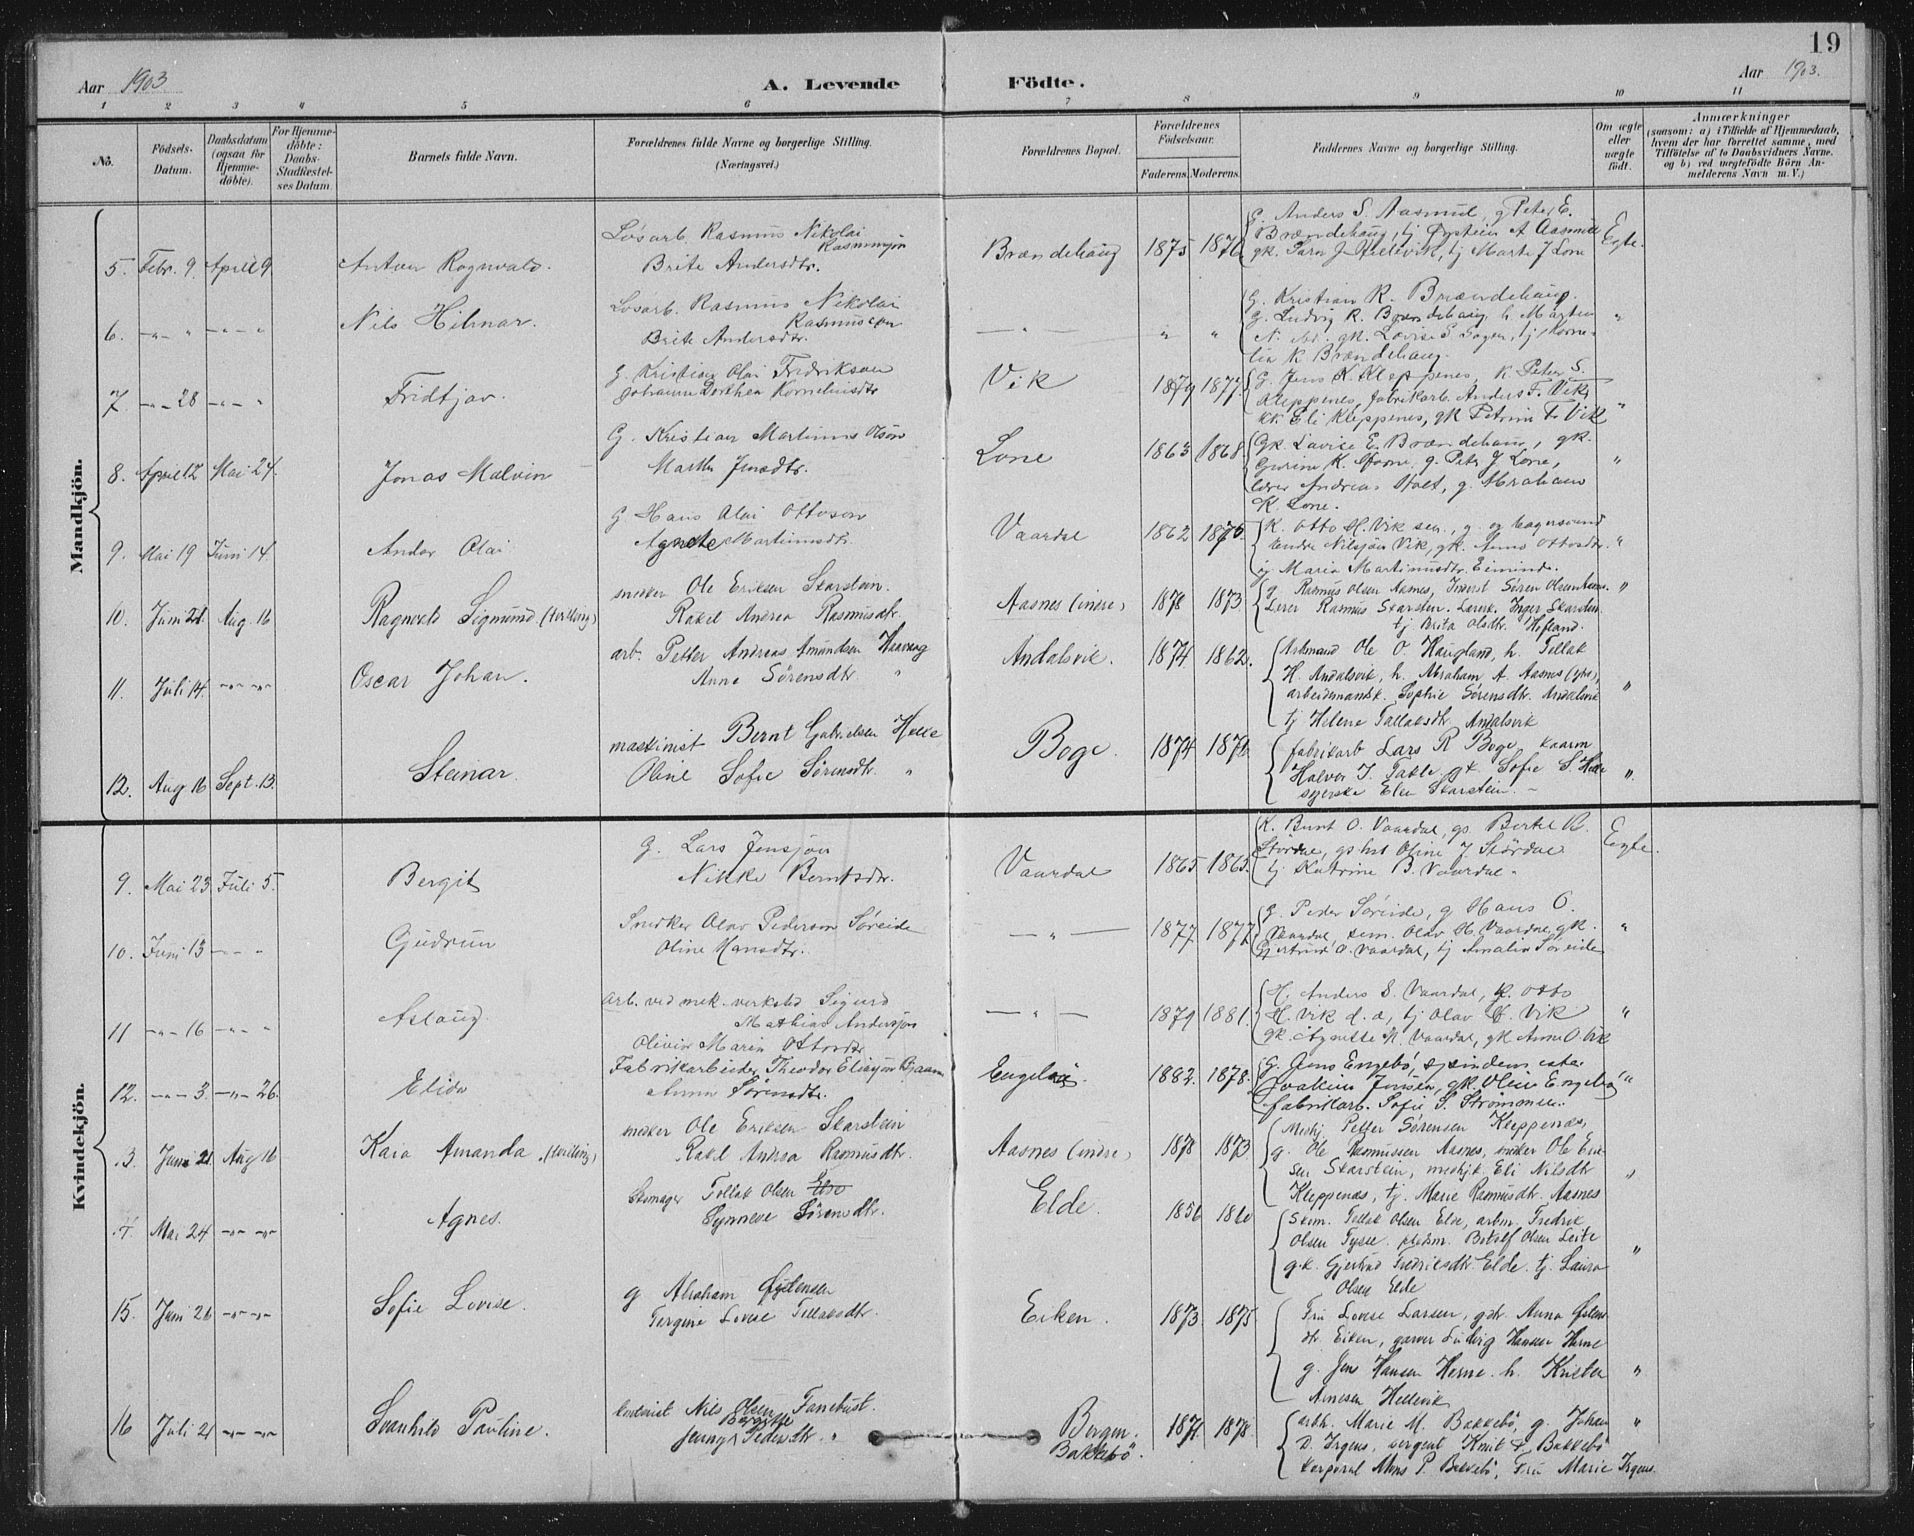 19
Aar 1903 A. Levende Födte. Aar 1903.
1 2 3 4 5 6 7 8 9 10 11
No.
Födsels-
Datum.
Daabsdatum
(ogsaa for
Hjemme-
döbte).
For Hjemme-
döbte:
Daabs-
Stadfæstel-
ses Datum.
Barnets fulde Navn.
Forældrenes fulde Navne og borgerlige Stilling.
(Næringsvei.)
Forældrenes Bopæl.
Forældrenes
Födselsaar.
Faderens. Moderens.
Faddernes Navne og borgerlige Stilling.
Om ægte
eller
uægte
født.
Anmærkninger
(saasom: a) i Tilfælde af Hjemmedaab,
hvem der har forrettet samme, med
Tilföielse af to Daabsvidners Navne.
og b) ved uægtefödte Börn An-
melderens Navn m. V.)
Mandkjön.
5. Febr. 9. April 9. Anton Ragnvald.
Løsarb. Rasmus Nikolai
Rasmussøn
Brite Andersdtr.
Brændehaug 1875 1876
G. Anders S. Aasmul, g Peter E.
Brændehaug, tj Øystein A Aasmul
tj Marte J Lone
Egte.
6. -"- " -"- " Nils Hilmar.
Løsarb. Rasmus Nikolai
Rasmussøn
Brite Andersdtr.
- " - " "
G. Kristian R. Brændehaug.
G. Ludvig R. Brændehaug
K Brændehaug.
"
7. -"- 28 -"- " Fridtjov.
G. Kristian Olai Fredriksen
Johanne Dorthea Korneliusdtr
Vik 1879 1877.
G. Jens K. Kleppenes, k. Peter S.
Kleppenes, fabrikarb. Anders F. Vik,
kk Eli Kleppenes, gk Petrine F. Vik
"
8. April 12 Mai 24. Jonas Malvin
G. Kristian Martinus Olsøn
Marthe Jensdtr.
Lone 1863 1868
Gk Lavise E. Brændehaug, gk.
g. Peter J Lone,
lærer Andreas Holt, g. Abraham
K. Lone.
"
9. Mai 19 Juni 14. Andor Olai
G Hans Olai Ottosøn
Agnete Martinusdtr.
Vaardal 1862 1875.
K. Otto H. Vik sen., g. og
Nilsjøn Vik, gk. Anne Ottosdtr.
tj Maria Martinusdtr.
"
10. Juni 21. Aug. 16 Ragnvald Sigmund (tvilling)
snekker Ole Eriksen Skarstein.
Rakel Andrea Rasmusdtr.
Aasnes (indre) 1878 1873
g. Rasmus Olsen Aasnes, Søren Olsen Aasnes.
Lærer Rasmus Skarstein. Inger Skarstein.
tj Brita Olsdtr. Hofland.
"
11. Juli 14. -"- -"- Oscar Johan.
arb. Petter Andreas Amundsen Haaveag
Anne Sørensdtr. "
Andalsvik. 1874 1862.
Arbmand Ole O. Haugland, h. Tollak
H. Andalsvik, h. Abraham A. Aasnes (ytre),
arbeidsmandsk. Sophie Sørensdtr. Andalsvik
tj Helene Tollaksdtr Andalsvik
"
12. Aug 16 Sept. 13. Steinar.
maskinist Bernt Gabrielsen Helle
Oline Sofie Sørensdtr. "
Boge. 1874 1872
fabrikarb Lars R Boge, kaarm
Halvor J. Takle, gk. Sofie S. Helle
syerske Elen Skarstein.
"
Kvindekjön.
9. Mai 23 Juli 5. Bergit
G. Lars Jensjøn
Nikke Berntsdtr.
Vaardal 1865 1865.
K. Bernt O. Vaardal, gs. Bertel R.
Størdal, Oline J. Størdal
tj Katrine B. Vaardal.
Egte.
10. Juni 13 -"- " Gudrun
Snedker Olav Pederson Søreide
Oline Hansdtr.
- " - 1877 1877.
G. Peder Søreide, g Hans O.
Vaardal, sem. Olav H. Vaardal, gk.
Gjertrud O. Vaardal, tj Amalia Søreide
"
11 -"- 16 -"- " Aslaug.
Arb. ved mek. verksted Sigurd
Mathias Andersjøn
Olivia Marie Ottosdtr
- " - 1879 1881.
H. Anders S. Vaardal, k. Otto
H. Vik d. æ, tj Olav H. Vik
gk. Agnette M. Vaardal, gk Anne O Vik
"
12. -"- 3. -"- 26. Elida
Fabrikarbeider Theodor Eliasjøn
Anna Sørensdtr.
Engebø. 1882. 1878.
G. Jens Engebø,
Joakim Jensen, gk. Oline Engebø
fabrikarb. Sofie S. Strømmen.
"
13. Juni 21 Aug 16 Kaia Amanda (tvilling)
snekker Ole Eriksen Skarstein
Rakel Andrea Rasmusdtr.
Aasnes (indre) 1878 1873
Petter Sørensen Kleppenæs,
g. Ole Rasmussen Aasnes, snekker Ole Erik-
sen Skarstein, Eli Nilsdtr
Kleppenæs, tj. Marie Rasmusdtr. Aasnes
"
14. Mai 24 -"- -"- Agnes.
Skomager Tollak Olsen Elde
Synneve Sørensdtr.
Elde. 1856 1860
Skom. Tollak Olsen Elde, arbm. Fredrik
Olsen Tysse. Botolf Olsen Leite
g.k. Gjertrud Fredriksdtr. Elde. tj. Laura
Olsen Elde
"
15. Juni 26 -"- -"- Sofie Lovise.
g Abraham Østensen
Tergine Lovise Tollaksdtr.
Eiken. 1873 1875
Fru Lovise Larsen, gdr. Anna Østens-
dtr. Eiken, garver Ludvig Hansen Herne
g. Jens Hansen Herne. h. Krister
Arnesen Hellevik
"
16 Juli 21 -"- -"- Svanhild Pauline.
Nils Olsen Tanebust.
Bergitte
Jenny Pedersdtr. "
Bergen.
Bakkebö. 1871 1878
arb. Marie M. Bakkebö, g. Johan
D. Irgens, sergent Knut P. Bakkebö
korporal Mons P. Bakkebö, Fru Marie Irgens.
"